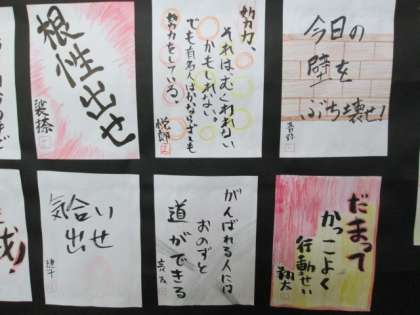 今日の
壁を
ぶち壊せ!
努力、
それはむくわれない
かもしれない。
でも有名人はかならずとも
努力をしている。
悠郎
根性出せ
だまって
かっこよく
行動せい
翔太
がんばれる人には
おのずと
道ができる
気合い
出せ